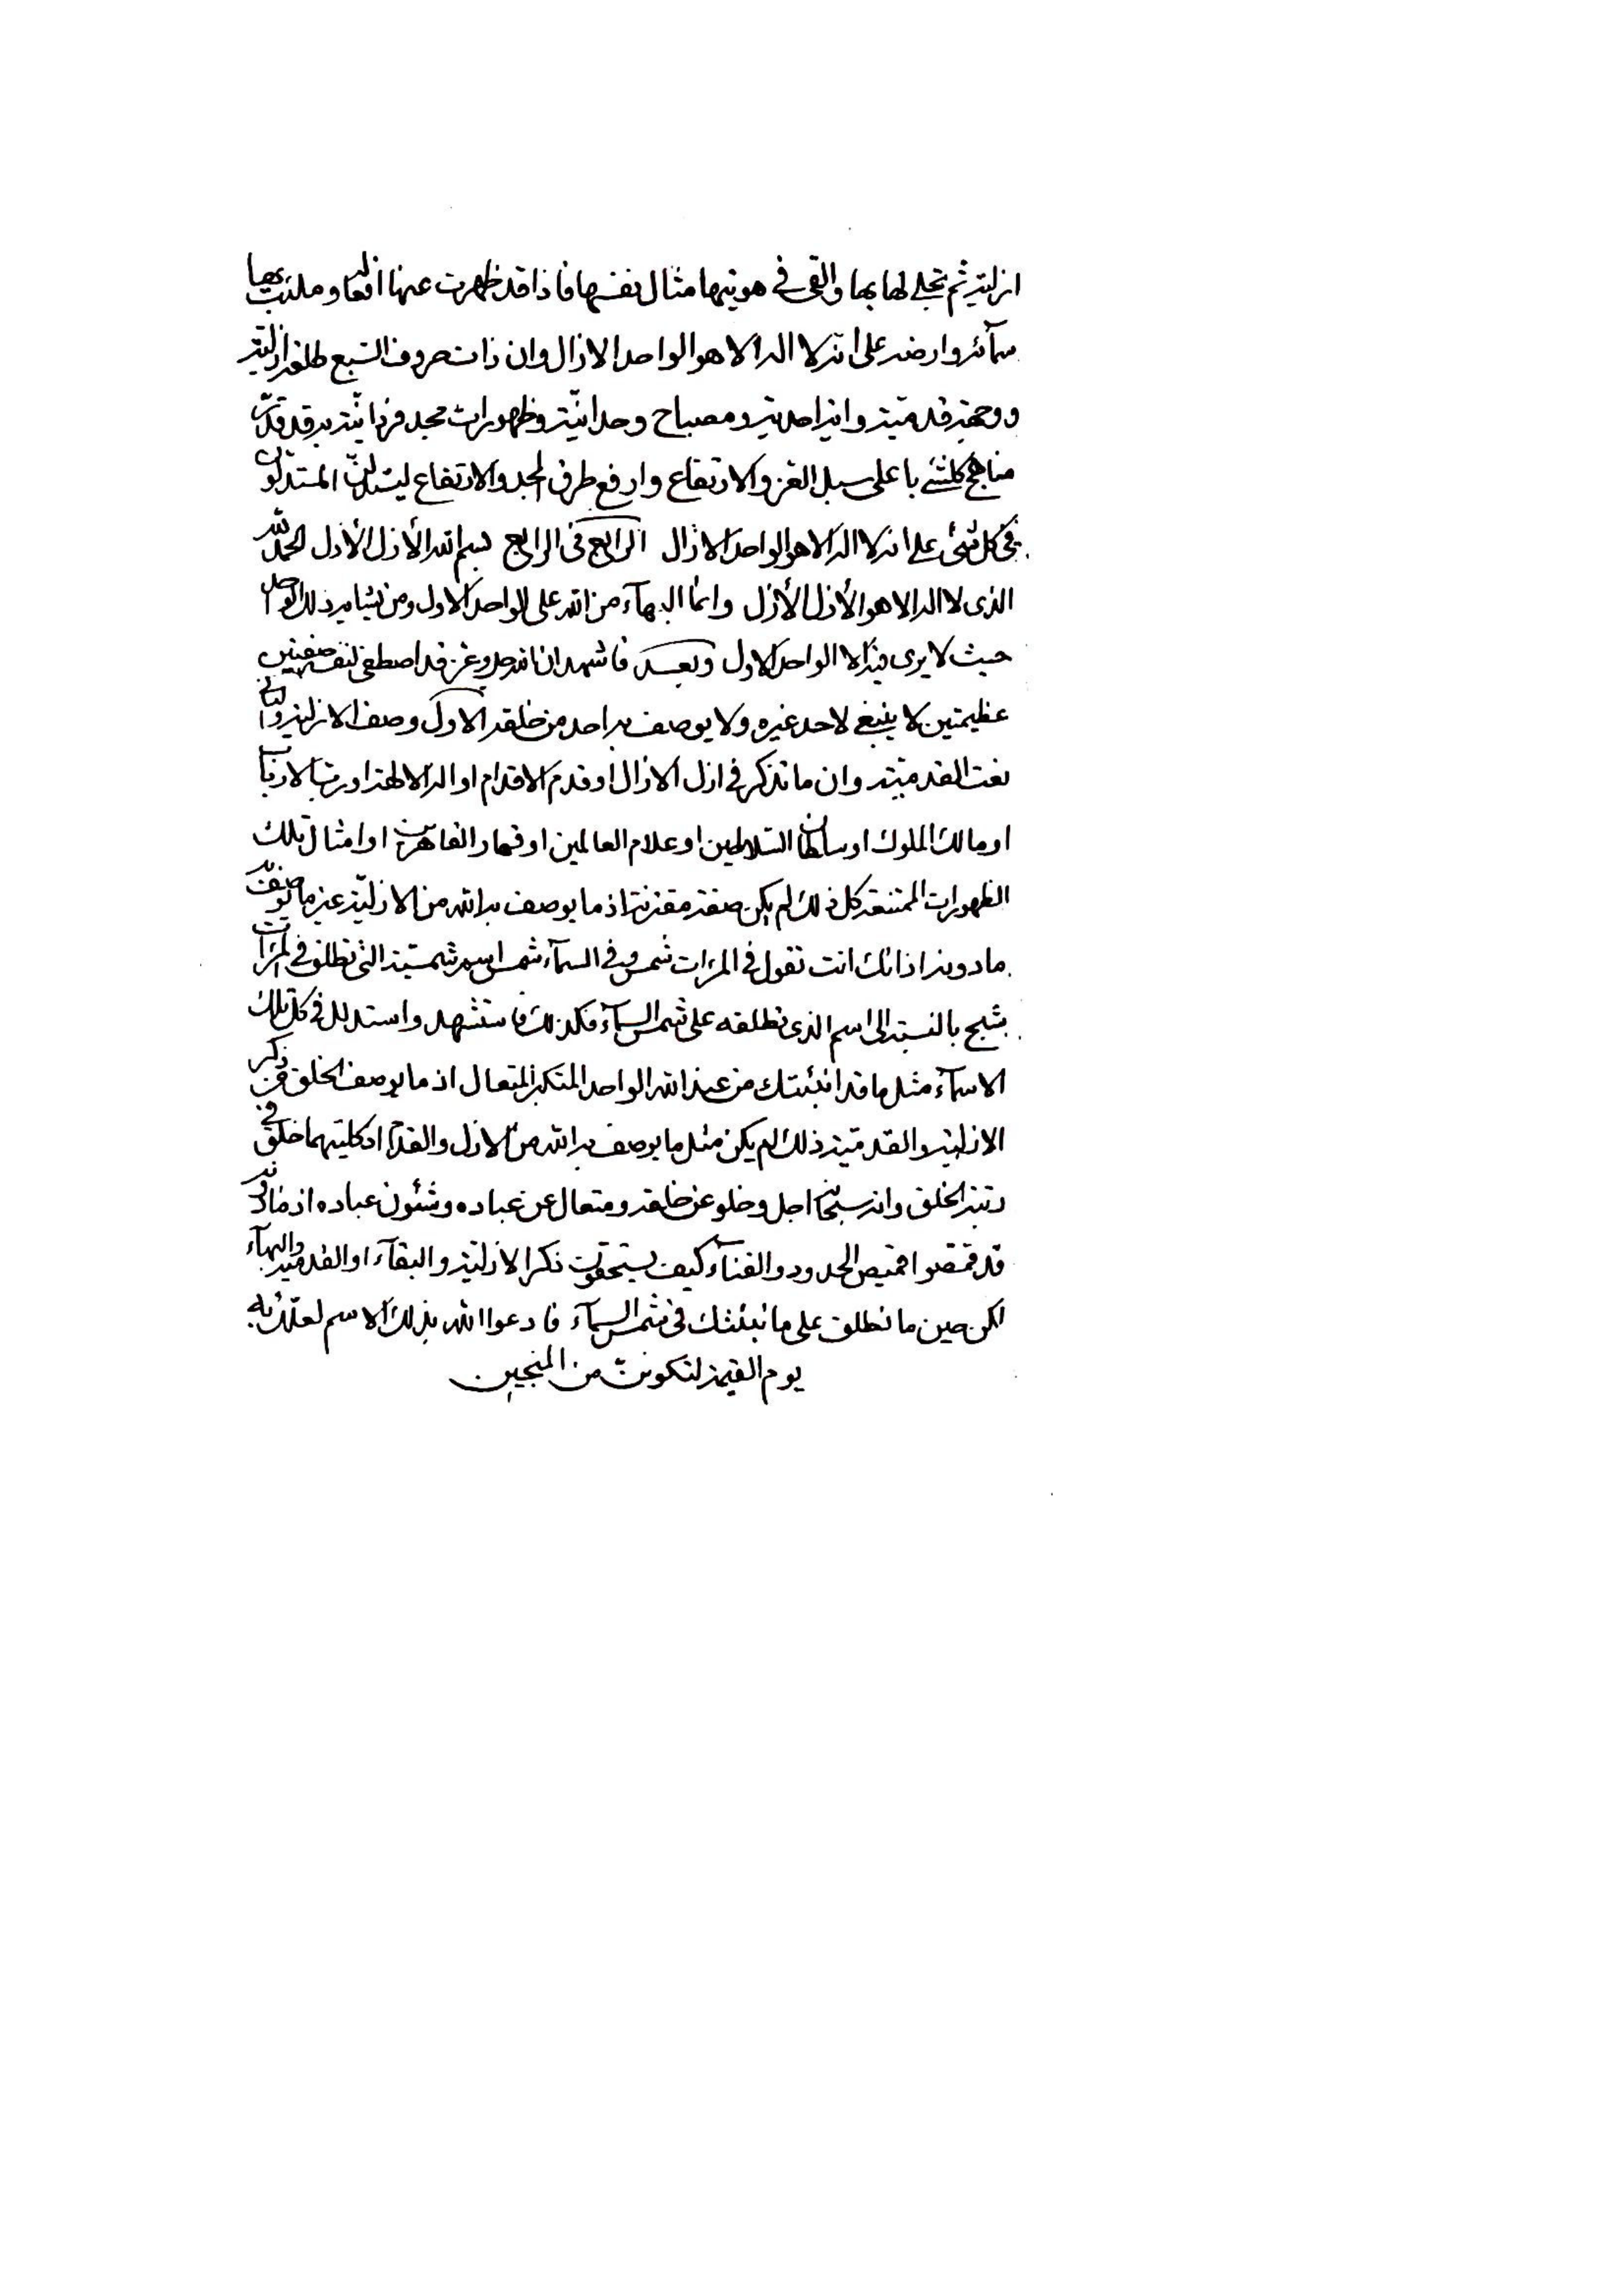 ازليته ثم تجلى لها بها والقى فى هويتها مثال نفسها فاذا قد ظهرت عنها افعاله وملئت بها
سمائه وارضه على انه لا اله الا هو الواحد الازال وان ذات حروف السبع طلعة ازليته
ووجهة قدميته وانية احديته ومصباح وحدانيته وظهورات مجد فردانيته به قد قدر
مناهج كلشئ باعلى سبل العز والارتفاع وارفع طرق المجد والارتفاع ليستدلن المستدلون
فى كل شئ على انه لا اله الا هو الواحد الازال الرابع فى الرابع بسم الله الأزل الأزل الحمد لله
الذى لا اله الا هو الأزل الأزل وانما البهآء من الله على الواحد الاول ومن يشابه ذلك الواحد
حيث لا يرى فيه الا الواحد الاول وبعد فاشهد ان الله جل وعز قد اصطفى لنفسه صفتين
عظيمتين لا ينبغى لاحد غيره ولا يوصف به احد من خلقه الاول وصف الازلية والثانى
نعت القدمية وان ما تذكر فى ازل الازال او قدم الاقدام او اله الالهة او رب الارباب
او مالك الملوك او سلطان السلاطين او علام العالمين او قهار القاهرين او امثال تلك
الظهورات الممتنعة كل ذلك لم يكن صفة مقترنة اذ ما يوصف به الله من الازلية غير ما توصف به
ما دونه اذ انك انت تقول فى المرات شمس وفى السمآء شمس اسم شمسية التى تطلق فى المرات
شبح بالنسبة الى اسم الذى تطلقه على شمس السمآء فكذلك فاستشهد واستدلل فى كل تلك
الاسمآء مثل ما قد انبئتك من عند الله الواحد المتكبر المتعال اذ ما يوصف الخلق من ذكر
الازلية والقدمية ذلك لم يكن مثل ما يوصف به الله من الازل والقدم اذ كليتهما خلق فى
رتبة الخلق وانه سبحانه اجل وخلو عن خلقه ومتعال عن عباده وشئون عباده اذ ما دونه
قد قمصوا قميص الحدود والفنآء كيف يستحقون ذكر الازلية والبقآء او القدمية والبهآء
لكن حين ما تطلق على ما نبئتك فى شمس السمآء فادعوا الله بذلك الاسم لعلك به
يوم القيمة لتكونن من المنجين